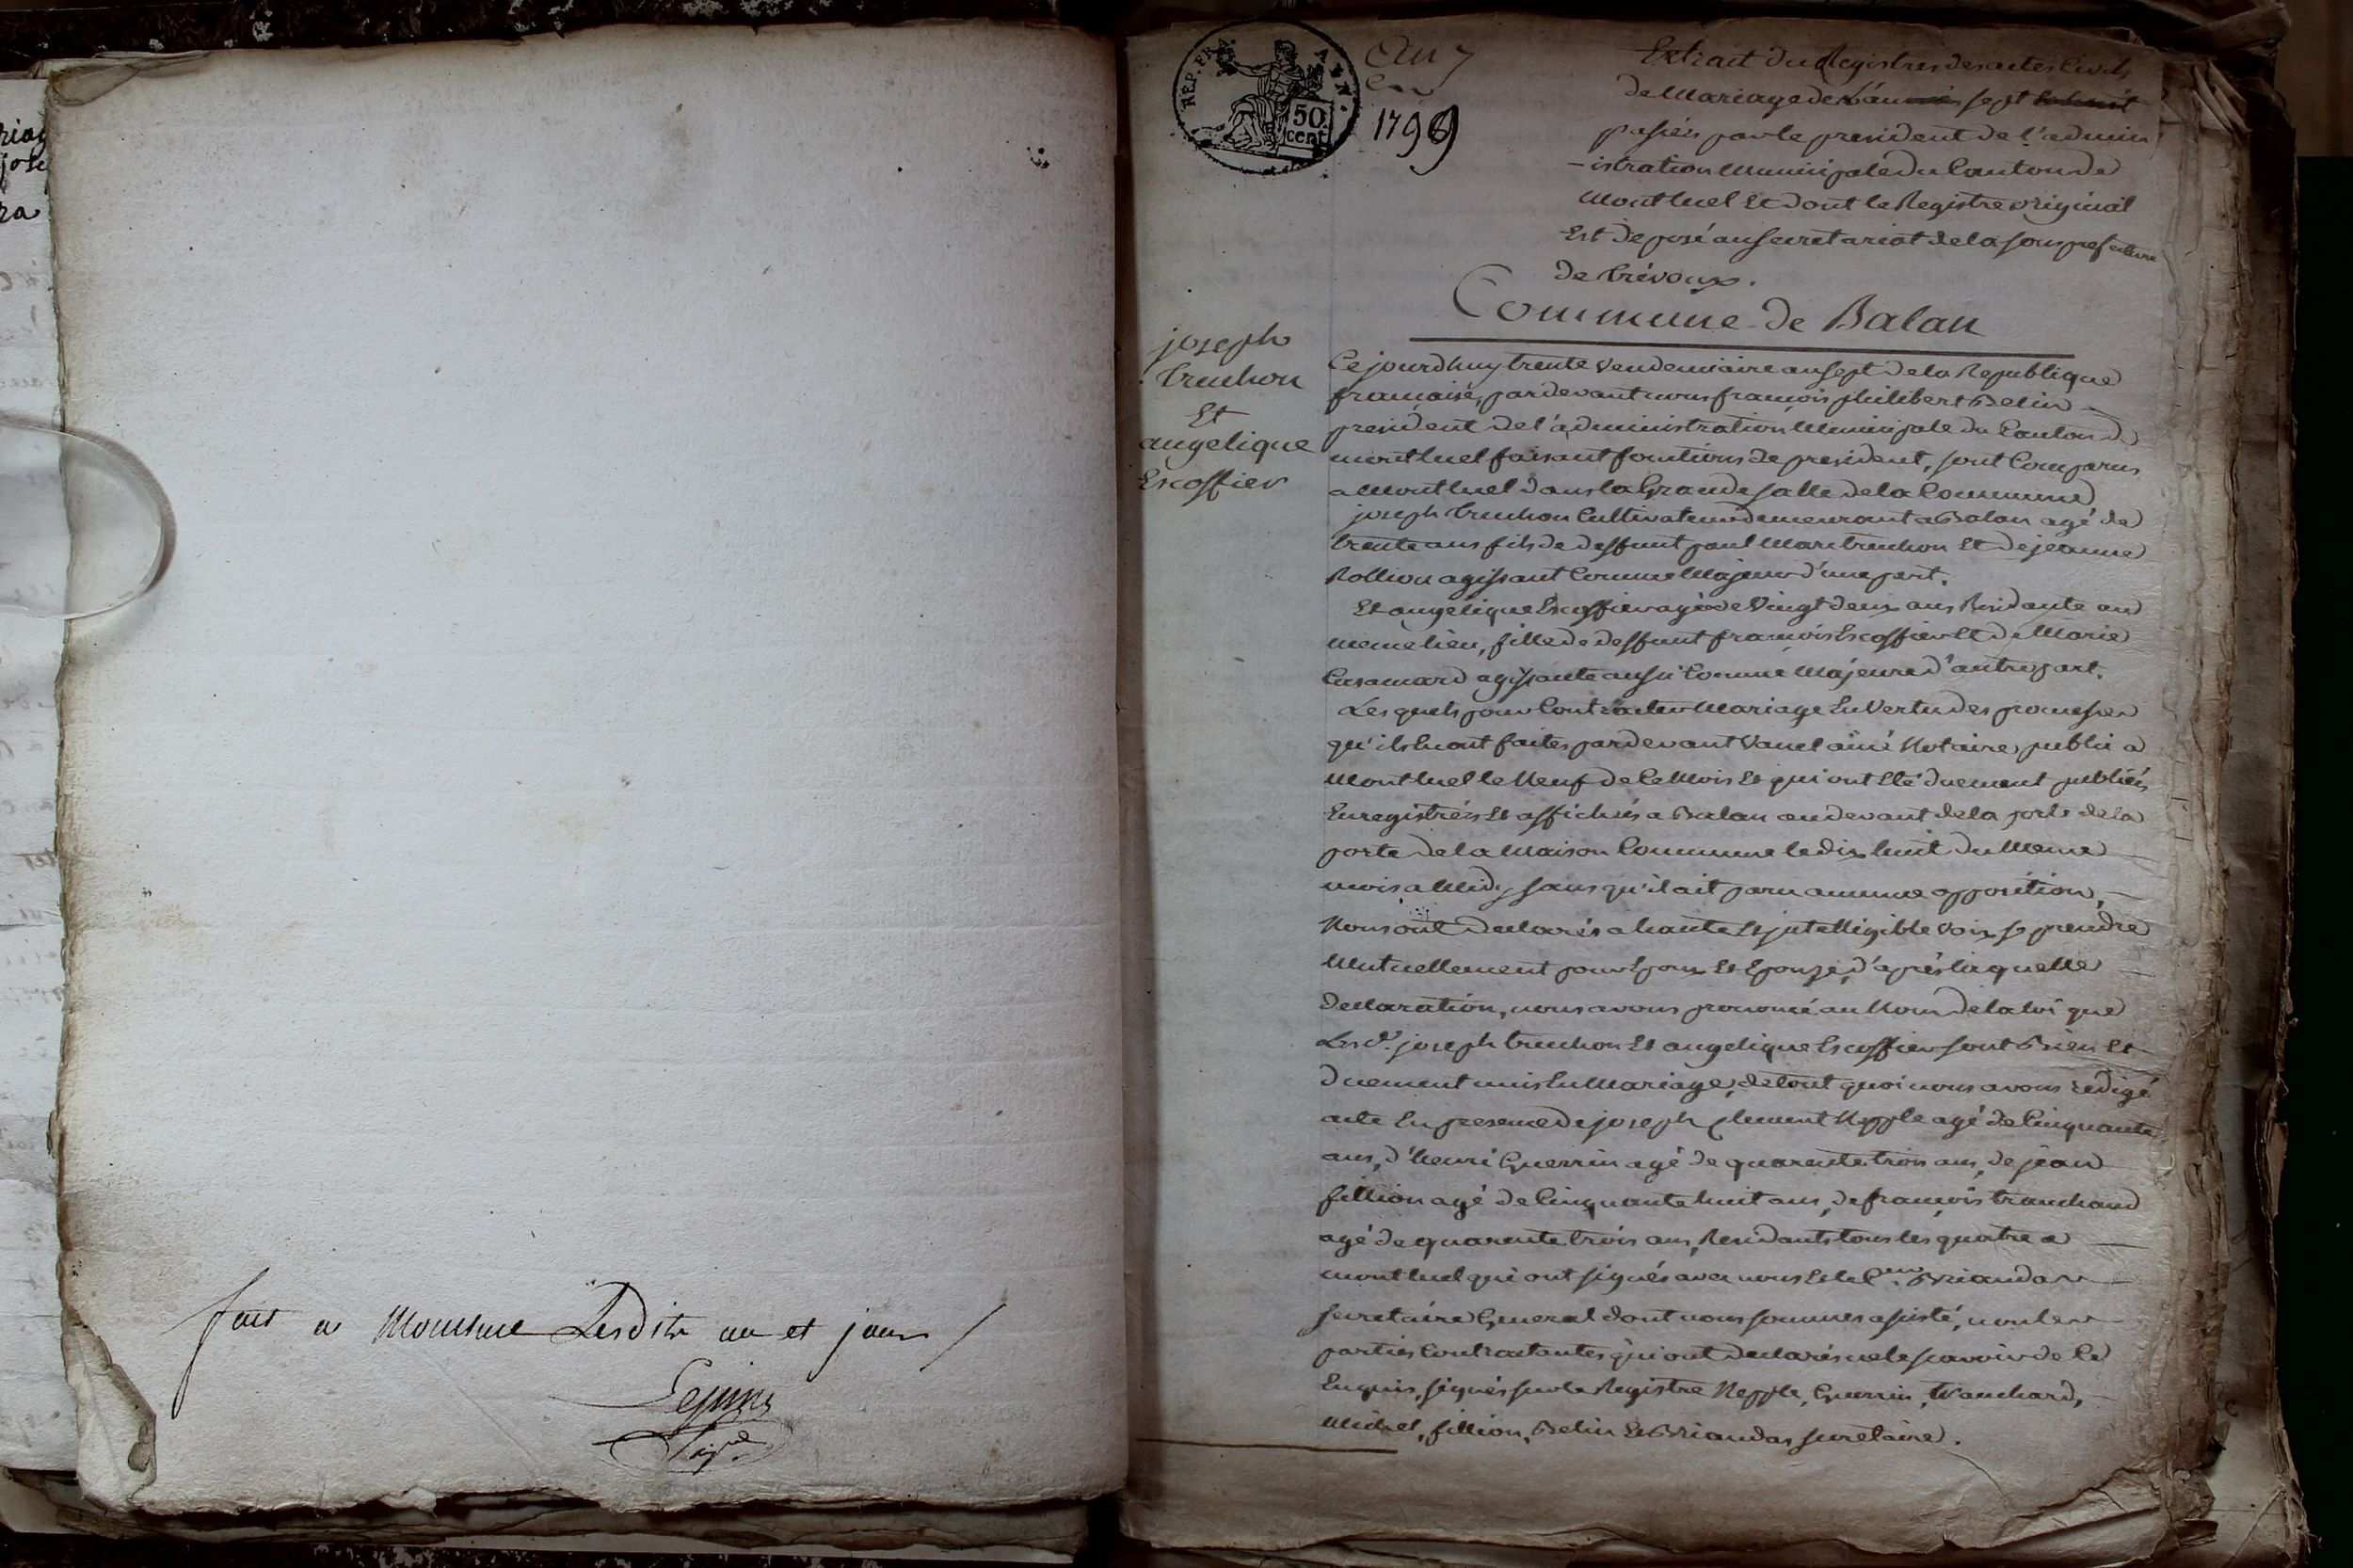 riag
jose
ra
fait a Monluel Lesdits an et jour /
REP. FRA.
50
cent
An 7
1799
Extrait du Registres des actes Civils
de Mariage de L'an sept
passés par le president de l'admin
-istration Municipale du Canton de
Montluel Et dont le Registre original
Est deposé au secretariat de la sous prefecture
de trévoux.
Commune de Balan
joseph
truchon
Et
angelique
Escoffier
Ce jourdhuy trente Vendemiaire an sept de la Republique
françaisé, pardevant nous françois philibert Belin
president de l'administration Municipale du Canton de
montluel faisant fonctions de president, sont Comparus
a Montluel dans la Grande salle de la Commune
joseph truchon Cultivateur demeurant a Balan agé de
trente ans fils de deffunt paul Marc truchon Et de jeanne
Rollion agissant Comme Majeur d'une part.
Et angelique Escoffier agée de Vingt deux ans Residante aud
meme lieu, fille de deffunt françois Escoffier Et de Marie
agissante aussi Comme Majeure d'autre part.
Lesquels pour Contracter Mariage En Vertu des promesses
qu'ils En ont faites pardevant Vanel ainé Notaire public a
Montluel le Neuf de Ce Mois Et qui ont Eté duement publiés
Enregistrés Et affichés a Balan au devant de la porte de la
porte de la Maison Commune le dix huit du Meme
mois a Midy sans qu'il ait paru aucune opposition,
Nous ont declarés a haute Et jntelligible voix se prendre
Mutuellement pour Epoux Et Epouze, d'après laquelle
declaration, nous avons prononcé au Nom de la loi que
Lesd. joseph truchon Et angelique Escoffier sont Bien Et
duement unis En Mariage, de tout quoi nous avons redigé
acte En presence de joseph Clement Nepple agé de Cinquante
ans, d'henri Guerrin agé de quarente trois ans, de jean
fillion agé de Cinquante huit ans, de françois tranchand
agé de quarente trois ans, Residants tous les quatre a
montluel qui ont signés avec nous Et le Cen. Briandas
secretaire General dont nous sommes assisté, non les
parties Contractantes qui ont declarés ne le sçavoir de Ce
Enquis, signés sur le Registre Nepple, Guerrin, tranchard,
Michel, fillion, Belin Et Briandas secretaire.